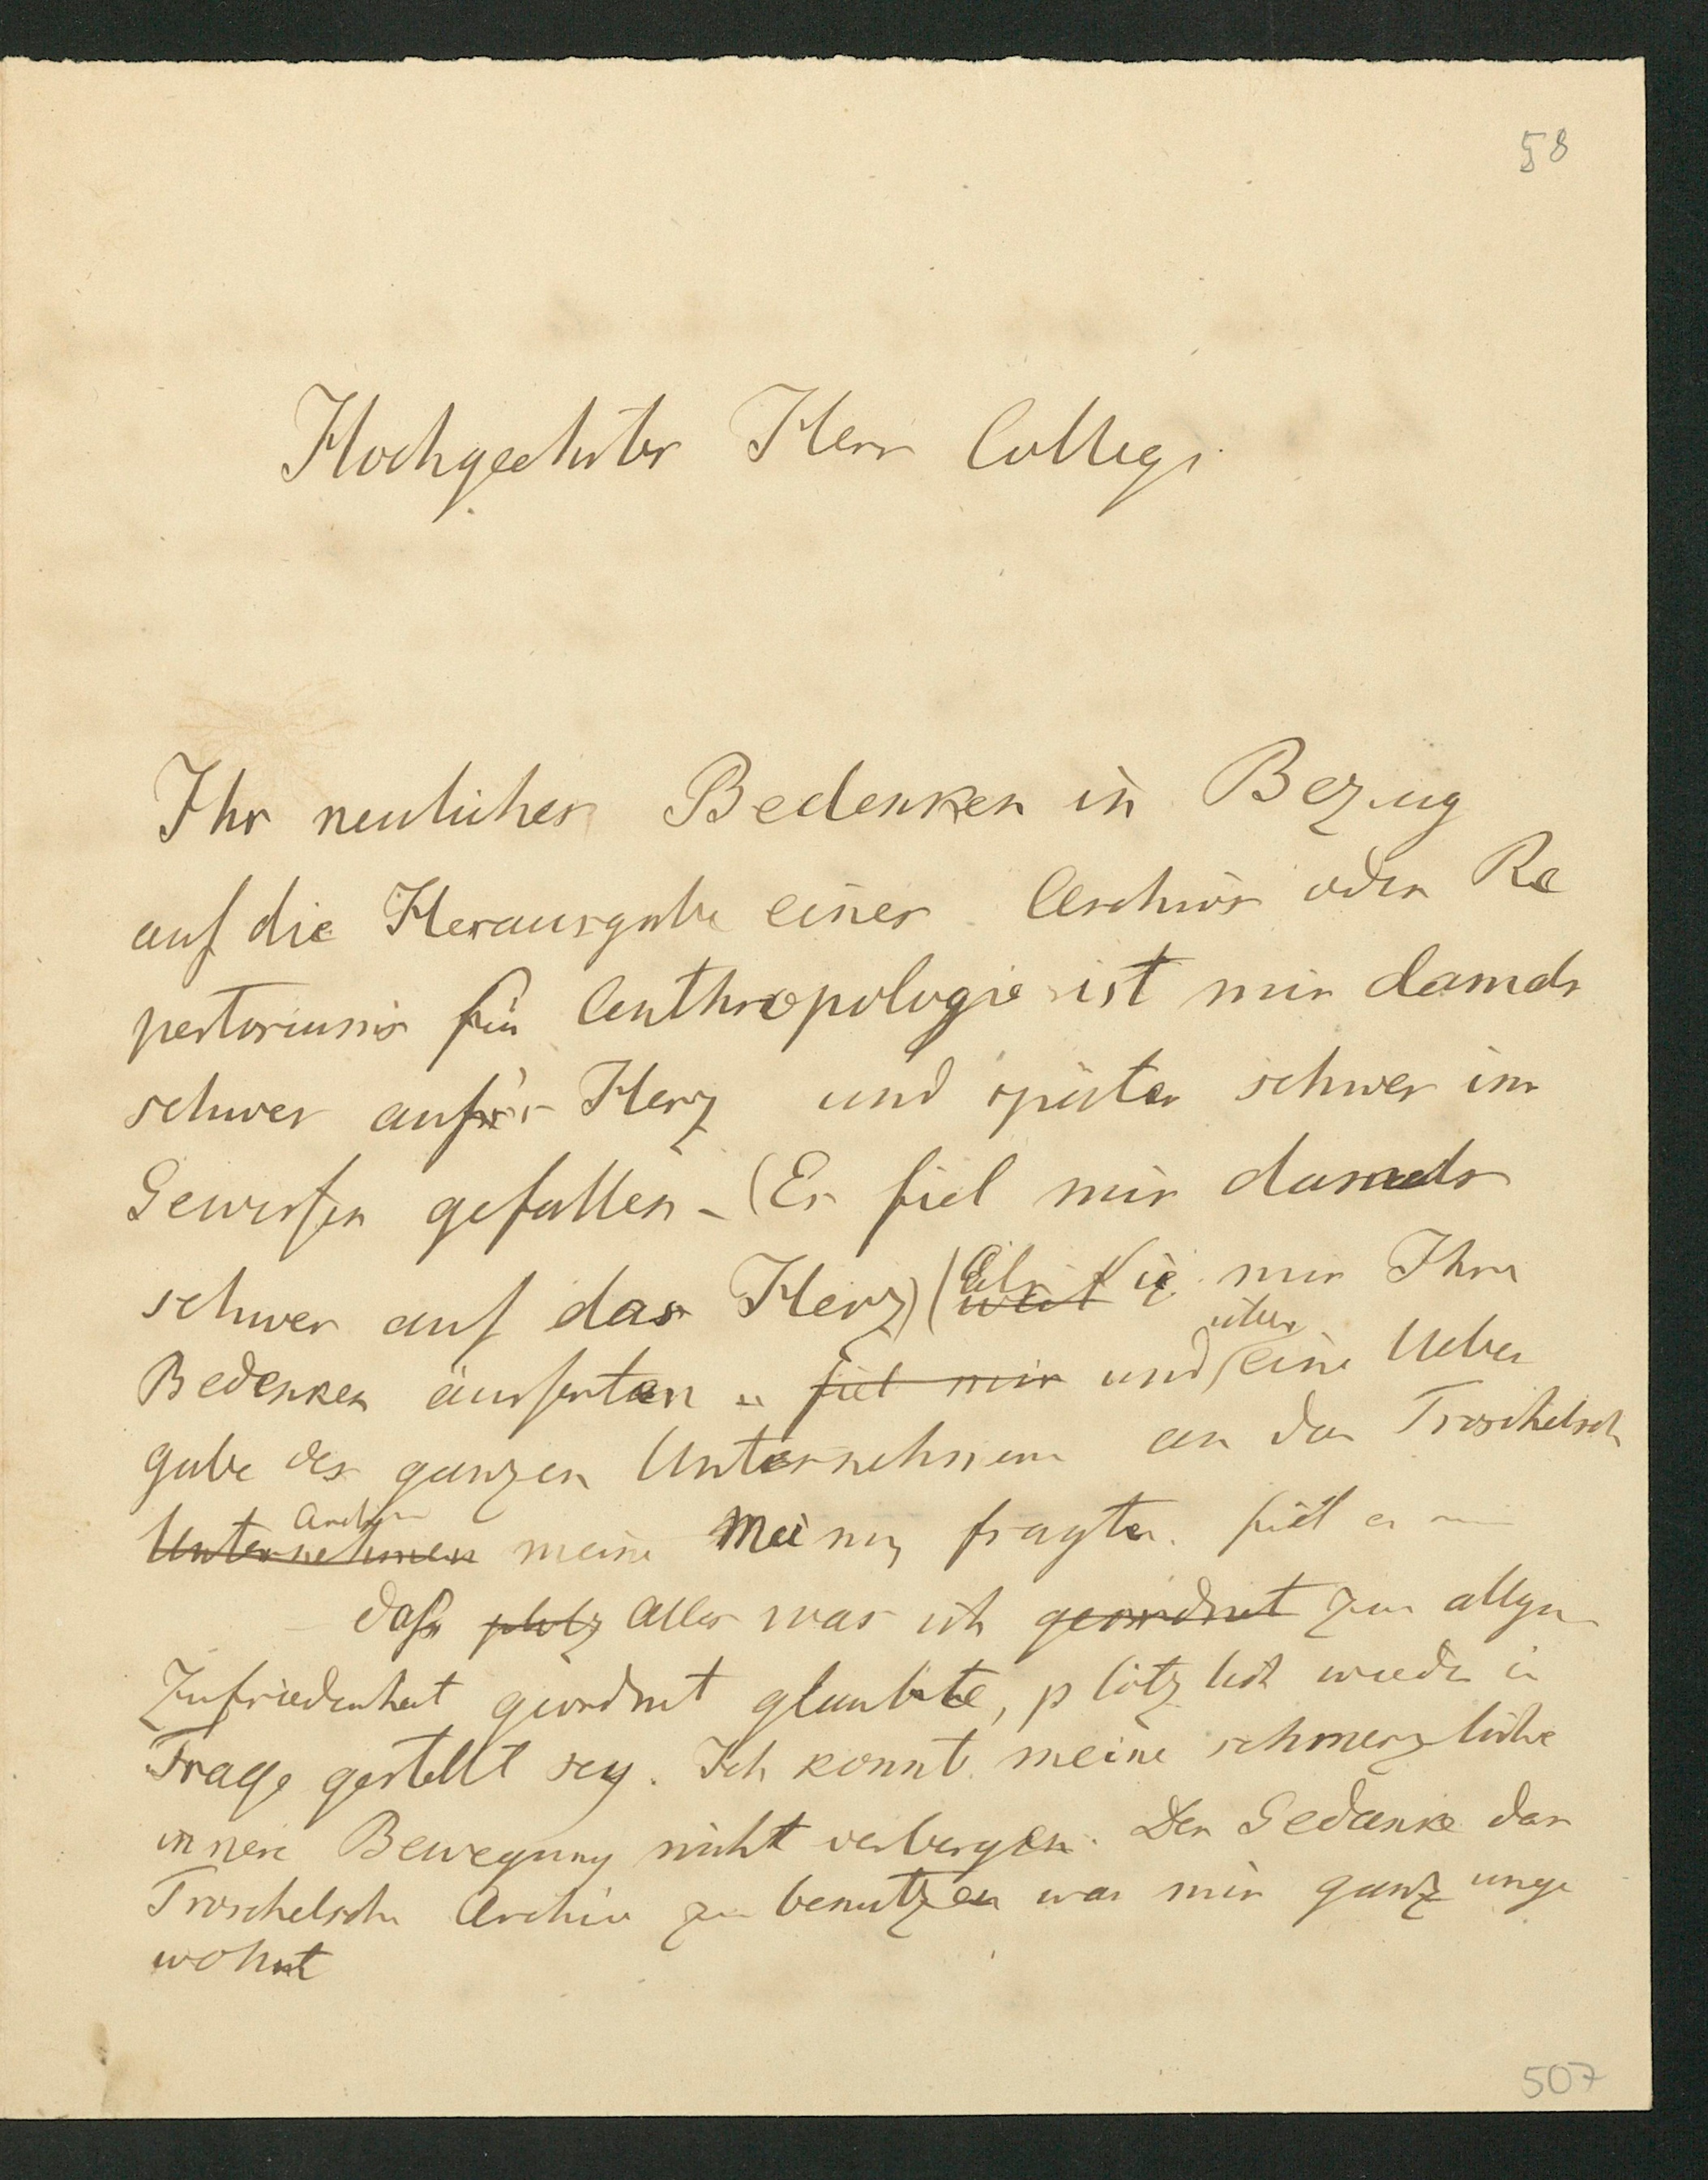 58
Hochgeehrter Herr College
Ihr neuliches Bedenken in Bezug
auf die Herausgabe eines Archivs oder Re
pertoriums für Anthropologie ist mir damals
schwer auf's Herz und später schwer im
Gewissen gefallen - (Es fiel mir damals
schwer auf das Herz) (Als Sie mir Ihre
Bedenken äusserten u. fiel mir und über eine Ueber
gabe des ganzen Unternehmens an das Troschelsch
Archiv
Unternehmen meine Meinung fragten. fiel es mir
dass plotz Alles was ich geordnet zur allgem
Zufriedenheit geordnet glaubte, plötzlich wieder in
Frage gestellt sey. Ich konnte meine schmerzliche
innere Bewegung nicht verbergen. Der Gedanke das
Troschelsche Archiv zu benutzen war mir ganz unge
wohnt
507